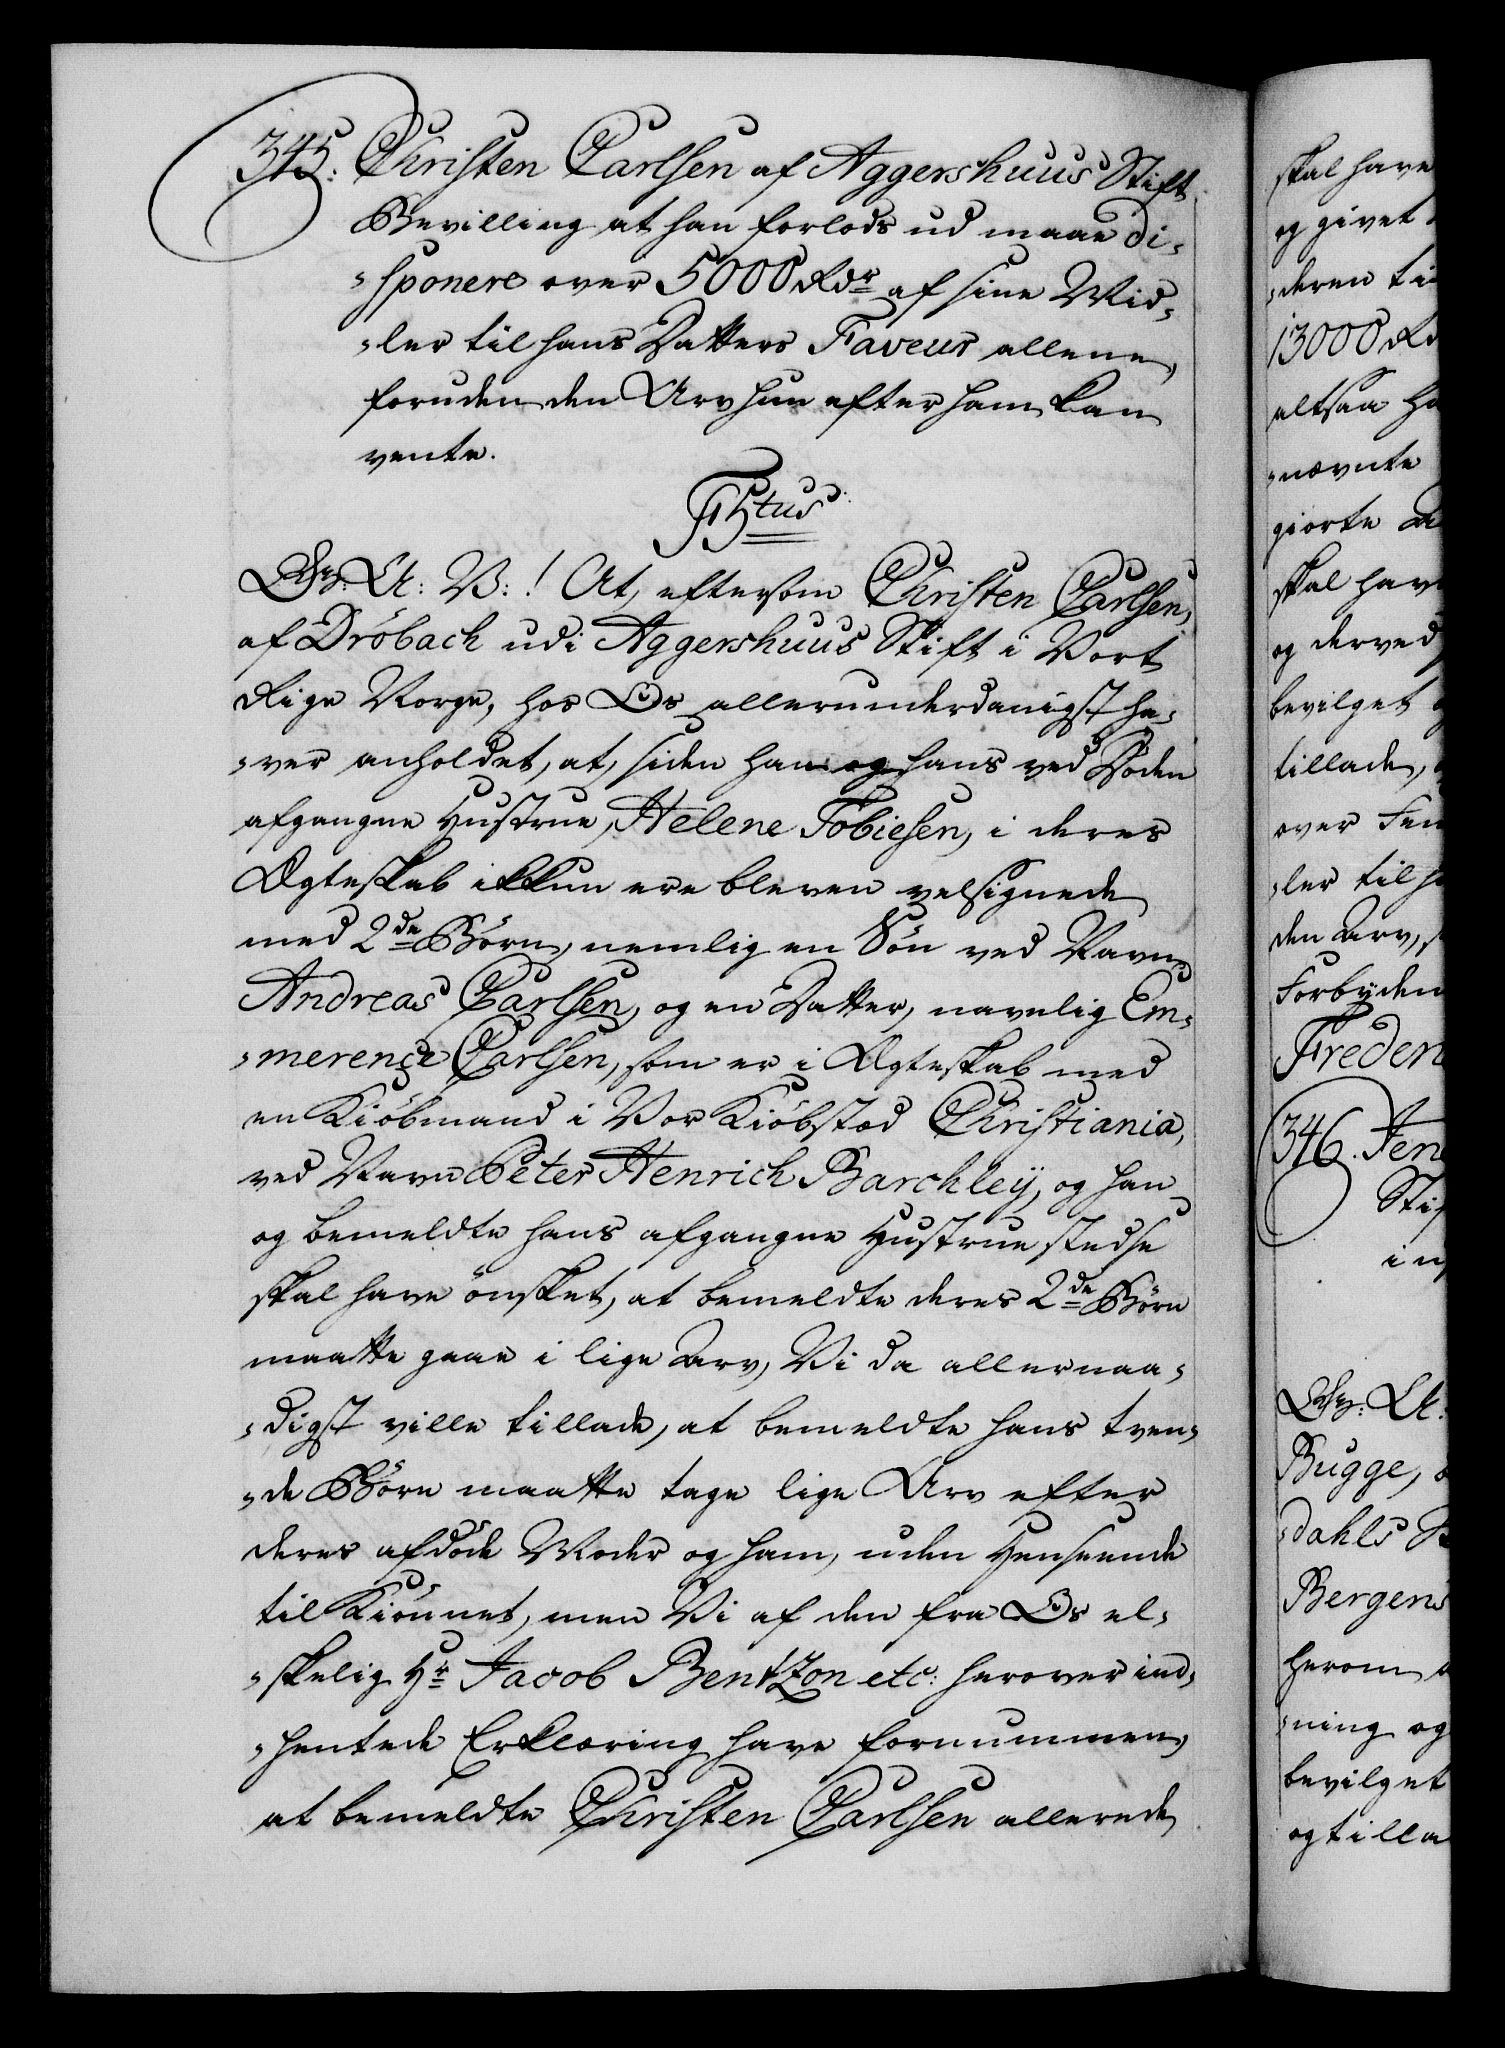 345. Christen Carlsen af Aggershuus Stift
Bevilling at han forlods ud maae di-
-sponere over 5000 Rdr af sine Mid-
-ler til hans Datters Faveur allene,
foruden den Arv hun efter ham kan
vente.
F5tus
Gr: A: V:! At, eftersom Christen Carlsen,
af Dröbach udi Aggershuus Stift i Vort
Rige Norge, hos Os allerunderdanigst ha-
-ver anholdet, at, siden han og hans ved Döden
afgangne Hustrue, Helene Tobiesen, i deres
Ægteskab ikkun ere bleven velsignede
med 2de Börn, nemlig en Sön ved Navn
Andreas Carlsen, og en Datter, navnlig Em-
-merence Carlsen, som er i Ægteskab med
en Kiöbmand i Vor Kiöbstæd Christiania,
ved Navn Peter Henrich Barchley, og han
og bemeldte hans afgangne Hustrue stedse
skal have önsket, at bemeldte deres 2de Börn
maatte gaae i lige Arv, Vi da allernaa-
-digst ville tillade, at bemeldte hans tven-
-de Börn maatte tage lige Arv efter
deres afdöde Moder og ham, uden Henseende
til Kiönnet, men Vi af den fra Os el-
-skelig Hr Jacob Bentzon etc: herover ind-
-hentede Erklæring have fornummen,
at bemeldte Christen Carlsen allerede
skal have
og givet
-deren ti
13000 Rd
altsaa Ha
-nævnte
giorte
skal hav
og derved
bevilget
tillade,
over Fem
-ler til h
den Arv, s
Forbyden
Frederi
346. Jen
Sti
in
Gr: A:
Bugge,
-dahls
Bergens
herom
-ning og
bevilget
og tilla